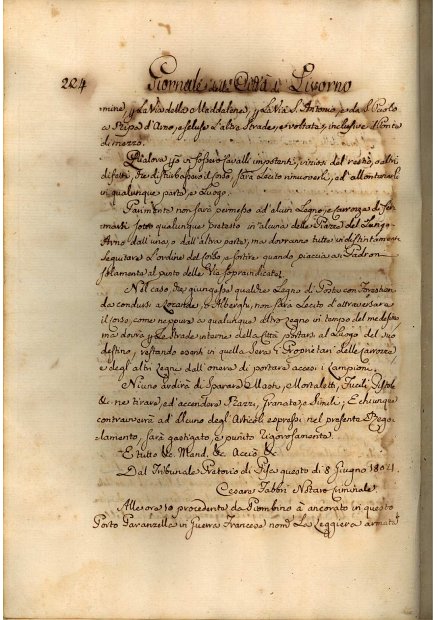 224 Giornale della Città di Livorno
mine, per la Via delle Maddalene, per la Via S. Antonio, e da S. Paolo
a Ripa d'Arno, escluse l'altre Strade, e voltata, inclusive il Ponte
di mezzo.
Qualora poi vi fossero Cavalli impotenti, viziosi del resto, o altri
difetti, che disturbassero il Corso, sarà lecito rimuoverli, ed allontanarli
in qualunque parte, e luogo.
Parimente non sarà permesso ad alcun Legno, e Carrozza di fer-
marsi sotto qualunque pretesto in alcuna delle Piazze del Lungo-
Arno dall'una, o dall'altra parte, ma dovranno tutte indistintamente
seguitare l'ordine del Corso, e sortire quando piaccia ai Padroni
solamente al punto delle Via sopraindicate.
Nel caso che giungesse qualche Legno di Posta con Forestieri
da condursi a Locande, o Alberghi, non sarà lecito d'attraversare
il Corso, come neppure a qualunque altro Legno in tempo del medesimo,
ma dovrà per le Strade interne della Città portarsi al luogo del suo
destino, restando esenti in quella Sera i Proprietari delle Carrozze
e degli altri Legni dall'onere di portare accesi i Lampioni.
Niuno ardirà di Sparare Mastj, Mortaletti, Fucili, Pistole
&. ne tirare, ed accendere Razzi, Granate, o Simili; E chiunque
contravverrà ad alcuno degli Articoli espressi nel presente Rego-
lamento, sarà gastigato, e punito rigorosamente.
E tutto &c. Mand. &c. Acciò &c.
Dal Tribunale Pretorio di Pisa questo dì 8 Giugno 1804.
Cesare Fabbri Notaro Criminale.
Alle ore 10 procedente da Piombino à ancorato in questo
Porto Paranzella in Guerra Francese nom.a La Leggiera armata